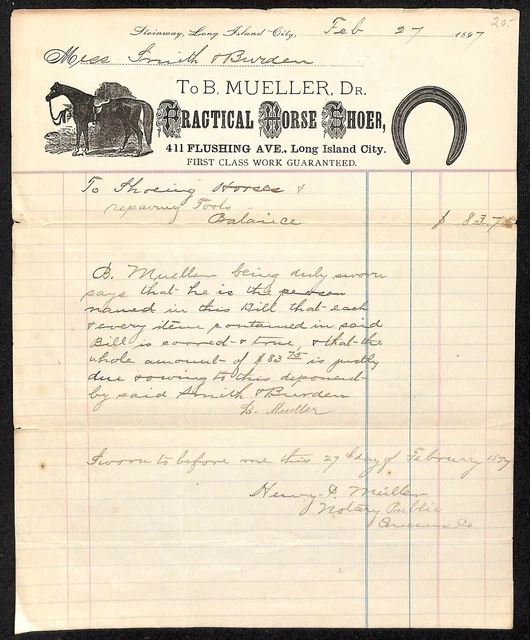 20
Steinway, Long Island City, Feb 27 1897
Mess Smith & Burden
To B. MUELLER, DR.
PRACTICAL HORSE SHOER,
411 FLUSHING AVE., Long Island City.
FIRST CLASS WORK GUARANTEED.
To Shoeing Horses &
repairing Tools
Balance $ 83.75
B. Mueller being duly sworn
says that he is the person
named in this Bill that each
& every item contained in said
Bill is correct & true, & that the
whole amount of $83 75 is justly
due & owing to this deponent
by said Smith & Burden
B. Mueller
Sworn to before me this 27th day of February 1897
Henry Müller
Notary Public
Queens Co